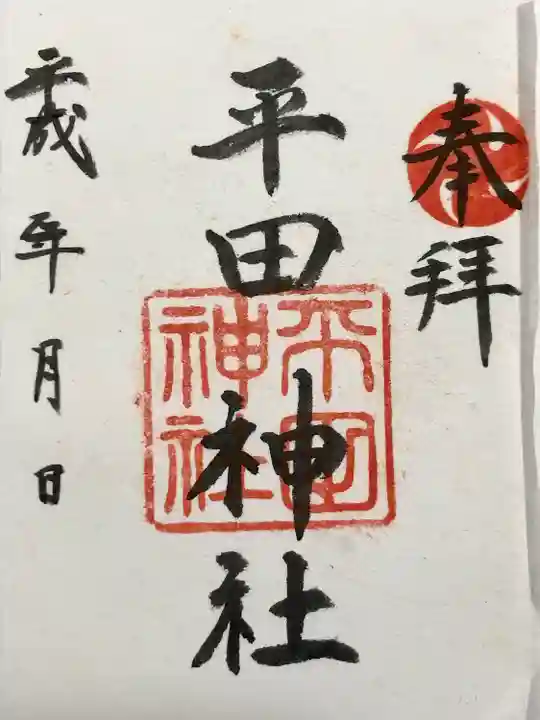 奉拝
平田神社
平田
神社
平成 年 月 日